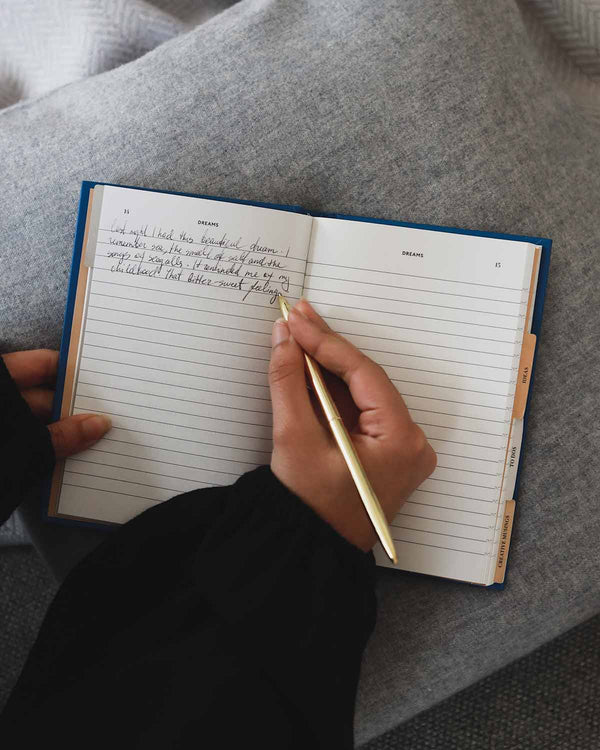 15
DREAMS
Last night I had this beautiful dream. I
remember sea, the smell of salt and the
songs of seagalls. It reminded me of my
childhood. That bitter-sweet feeling
DREAMS
15
IDEAS
TO DOS
CREATIVE MUSINGS